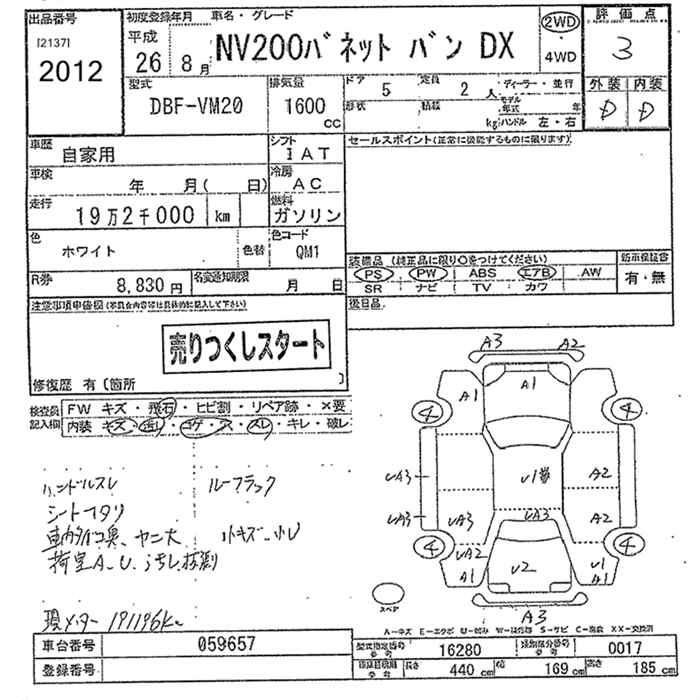 出品番号 初度登録年月 車名・グレード 評価点
[2137] 2012
平成 26 8月 NV200バネット バン DX 2WD・4WD 3
型式 DBF-VM20 排気量 1600 cc ドア 5 定員 2人 ディーラー・並行
形状 積載 kg モデル年式 年 ハンドル 左・右
外装 内装
D D
車歴 自家用 シフト I AT セールスポイント(正常に機能するものに限ります)
車検 年 月( 日) 冷房 AC
走行 19万2千000 km 燃料 ガソリン
色 ホワイト 色替 色コード QM1
装備品 (純正品に限り○をつけてください) 新車保証書
PS PW ABS エアB AW 有・無
SR ナビ TV カワ
R券 8,830円 名変通知期限 月 日 後日品
注意事項申告欄
売りつくしスタート
修復歴 有 〔箇所 〕
検査員記入欄 FW キズ・飛石・ヒビ割・リペア跡・×要
内装 キズ・汚し・コゲ・穴・スレ・キレ・破レ
ハンドルスレ ルーフラック
シートヘタリ
車内タバコ臭、ヤニ大 小キズ・小U
荷室A、U、汚し
現メーター 191196km
A3 A2
A1 A1
4 4
UA3 A2
UA3 UA3 A2
UA3
4 4
UA2 U1
A1 U2 A1
A3
スペア
A-キズ E-エクボ U-凹み W-補修跡 S-サビ C-腐蝕 XX-交換済
車台番号 059657 型式指定番号 参考 16280 類別区分番号 参考 0017
登録番号 長さ 440 cm 幅 169 cm 高さ 185 cm